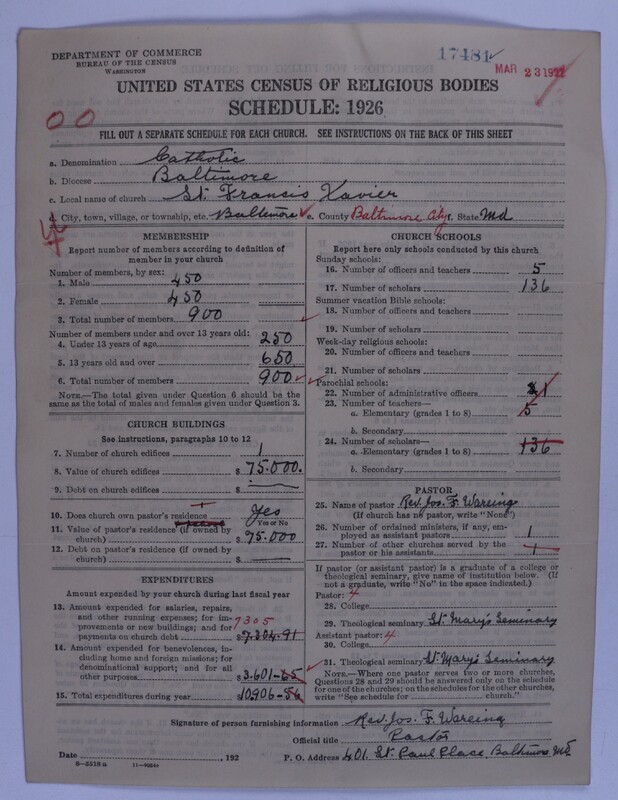 DEPARTMENT OF COMMERCE
BUREAU OF THE CENSUS
WASHINGTON
17481
MAR 23 192
UNITED STATES CENSUS OF RELIGIOUS BODIES
SCHEDULE: 1926
00
FILL OUT A SEPARATE SCHEDULE FOR EACH CHURCH. SEE INSTRUCTIONS ON THE BACK OF THIS SHEET
a. Denomination Catholic
b. Diocese Baltimore
c. Local name of church St Francis Xavier
d. City, town, village, or township, etc. Baltimore e. County Baltimore City f. State Md
MEMBERSHIP
Report number of members according to definition of
member in your church
Number of members, by sex:
1. Male 450
2. Female 450
3. Total number of members 900
Number of members under and over 13 years old:
4. Under 13 years of age 250
5. 13 years old and over 650
6. Total number of members 900
NOTE.—The total given under Question 6 should be the
same as the total of males and females given under Question 3.
CHURCH BUILDINGS
See instructions, paragraphs 10 to 12
7. Number of church edifices 1
8. Value of church edifices $ 75.000.
9. Debt on church edifices $
10. Does church own pastor's residence Yes
Yes or No
11. Value of pastor's residence (if owned by
church) $ 95.000
12. Debt on pastor's residence (if owned by
church) $
EXPENDITURES
Amount expended by your church during last fiscal year
13. Amount expended for salaries, repairs,
and other running expenses; for im-
provements or new buildings; and for
payments on church debt 7305 $ 7.304-91
14. Amount expended for benevolences, in-
cluding home and foreign missions; for
denominational support; and for all
other purposes $ 3.601-65
15. Total expenditures during year 10906-56
CHURCH SCHOOLS
Report here only schools conducted by this church
Sunday schools:
16. Number of officers and teachers 5
17. Number of scholars 136
Summer vacation Bible schools:
18. Number of officers and teachers
19. Number of scholars
Week-day religious schools:
20. Number of officers and teachers
21. Number of scholars
Parochial schools:
22. Number of administrative officers 1
23. Number of teachers—
a. Elementary (grades 1 to 8) 5
b. Secondary
24. Number of scholars—
a. Elementary (grades 1 to 8) 136
b. Secondary
PASTOR
25. Name of pastor Rev. Jos. F. Wareing
(If church has no pastor, write "None")
26. Number of ordained ministers, if any, em-
ployed as assistant pastors 1
27. Number of other churches served by the
pastor or his assistants 1
If pastor (or assistant pastor) is a graduate of a college or
theological seminary, give name of institution below. (If
not a graduate, write "No" in the space indicated.)
Pastor: 4
28. College
29. Theological seminary St. Mary's Seminary
Assistant pastor: 4
30. College
31. Theological seminary St. Mary's Seminary
NOTE.—Where one pastor serves two or more churches,
Questions 28 and 29 should be answered only on the schedule
for one of the churches; on the schedules for the other churches,
write "See schedule for church."
Signature of person furnishing information Rev. Jos. F. Wareing
Official title Pastor
Date , 192 P. O. Address 401 St. Paul Place, Baltimore Md